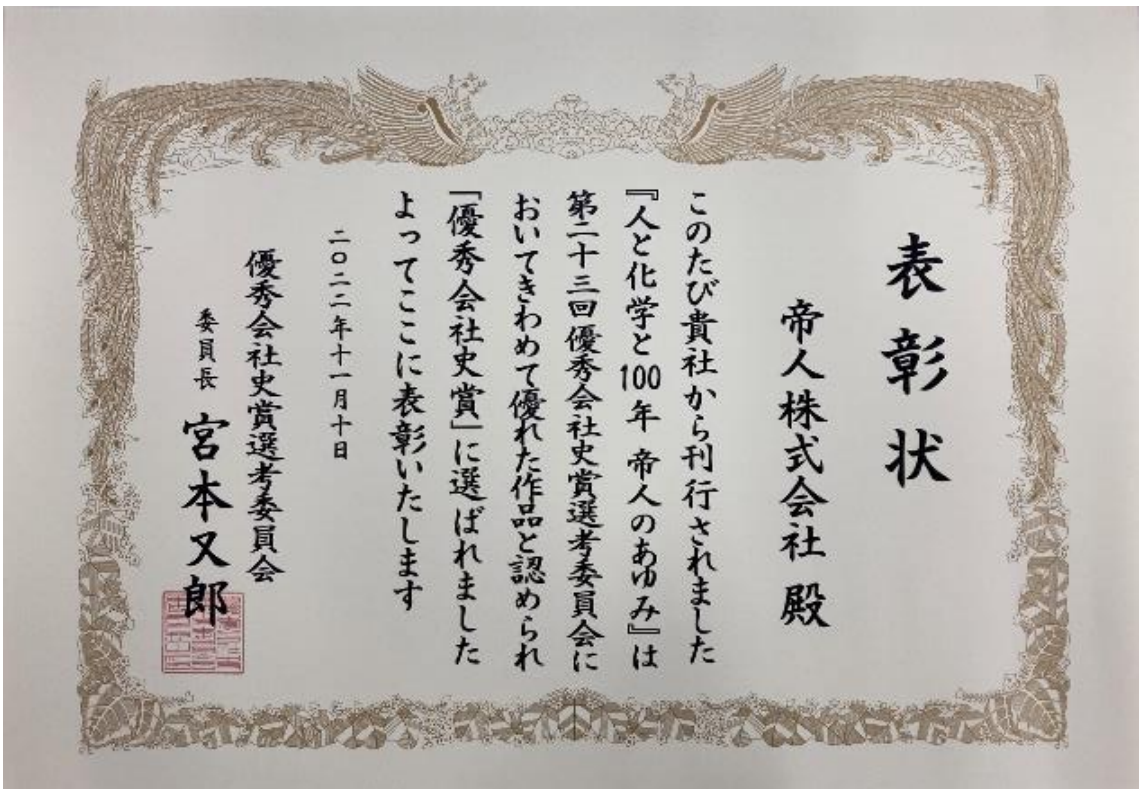 表彰状
帝人株式会社 殿
このたび貴社から刊行されました
『人と化学と100年 帝人のあゆみ』は
第二十三回優秀会社史賞選考委員会に
おいてきわめて優れた作品と認められ
「優秀会社史賞」に選ばれました
よってここに表彰いたします
二〇二二年十一月十日
優秀会社史賞選考委員会
委員長 宮本又郎